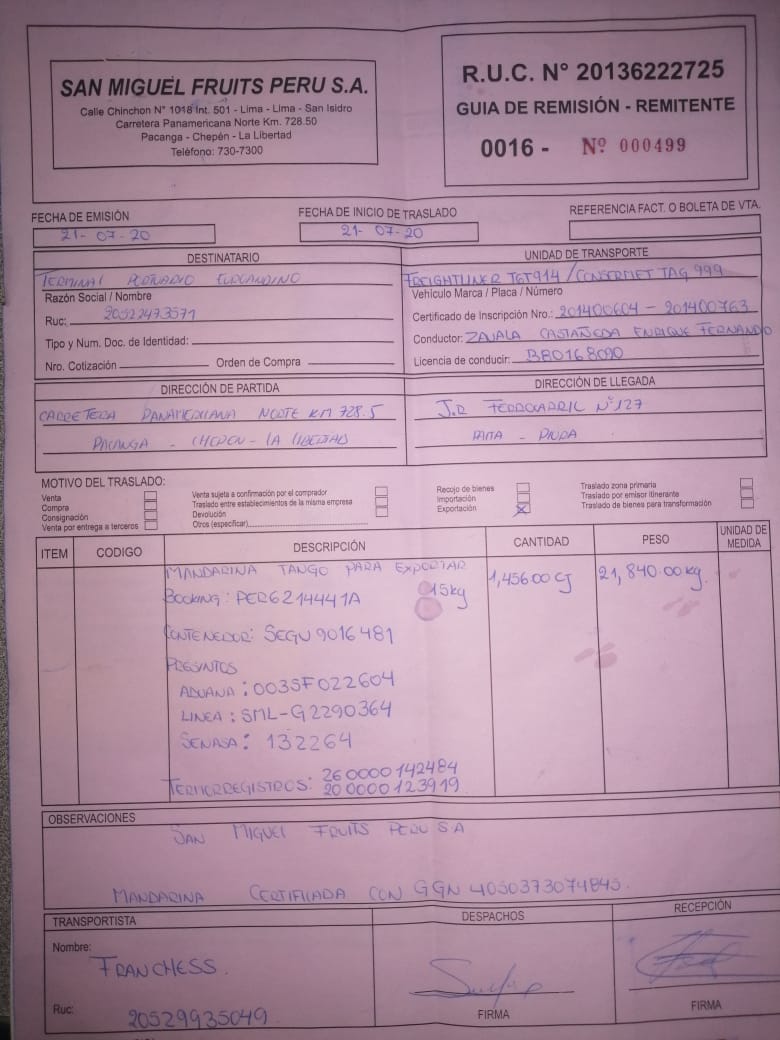 SAN MIGUEL FRUITS PERU S.A.
Calle Chinchon N° 1018 Int. 501 - Lima - Lima - San Isidro
Carretera Panamericana Norte Km. 728.50
Pacanga - Chepén - La Libertad
Teléfono: 730-7300
R.U.C. N° 20136222725
GUIA DE REMISIÓN - REMITENTE
0016 - Nº 000499
FECHA DE EMISIÓN
21-07-20
FECHA DE INICIO DE TRASLADO
21-07-20
REFERENCIA FACT. O BOLETA DE VTA.
DESTINATARIO
TERMINAL PORTUARIO EUROANDINO
Razón Social / Nombre
Ruc: 20522473571
Tipo y Num. Doc. de Identidad:
Nro. Cotización Orden de Compra
UNIDAD DE TRANSPORTE
FREIGHTLINER TGT914 / CONSERMET TAG 999
Vehículo Marca / Placa / Número
Certificado de Inscripción Nro.: 201400604 - 201400763
Conductor: ZAVALA CASTAÑEDA ENRIQUE FERNANDO
Licencia de conducir: B80168090
DIRECCIÓN DE PARTIDA
CARRETERA PANAMERICANA NORTE KM 728.5
PACANGA - CHEPEN - LA LIBERTAD
DIRECCIÓN DE LLEGADA
J.R FERROCARRIL N°127
PAITA - PIURA
MOTIVO DEL TRASLADO:
Venta
Compra
Consignación
Venta por entrega a terceros
Venta sujeta a confirmación por el comprador
Traslado entre establecimientos de la misma empresa
Devolución
Otros (especificar)
Recojo de bienes
Importación
Exportación X
Traslado zona primaria
Traslado por emisor itinerante
Traslado de bienes para transformación
ITEM CODIGO DESCRIPCIÓN CANTIDAD PESO UNIDAD DE MEDIDA
MANDARINA TANGO PARA EXPORTAR 1,456.00 CJ 21,840.00 kg.
BOOKING: PER6214441A 15kg
CONTENEDOR: SEGU 9016481
PRESINTOS
ADUANA: 003SF022604
LINEA: SML-G2290364
SENASA: 132264
TERMORREGISTROS: 260000142484
200000123919
OBSERVACIONES
SAN MIGUEL FRUITS PERU S.A
MANDARINA CERTIFICADA CON GGN 4050373074845.
TRANSPORTISTA
Nombre:
FRANCHESS.
Ruc: 20529935049
DESPACHOS
FIRMA
RECEPCIÓN
FIRMA